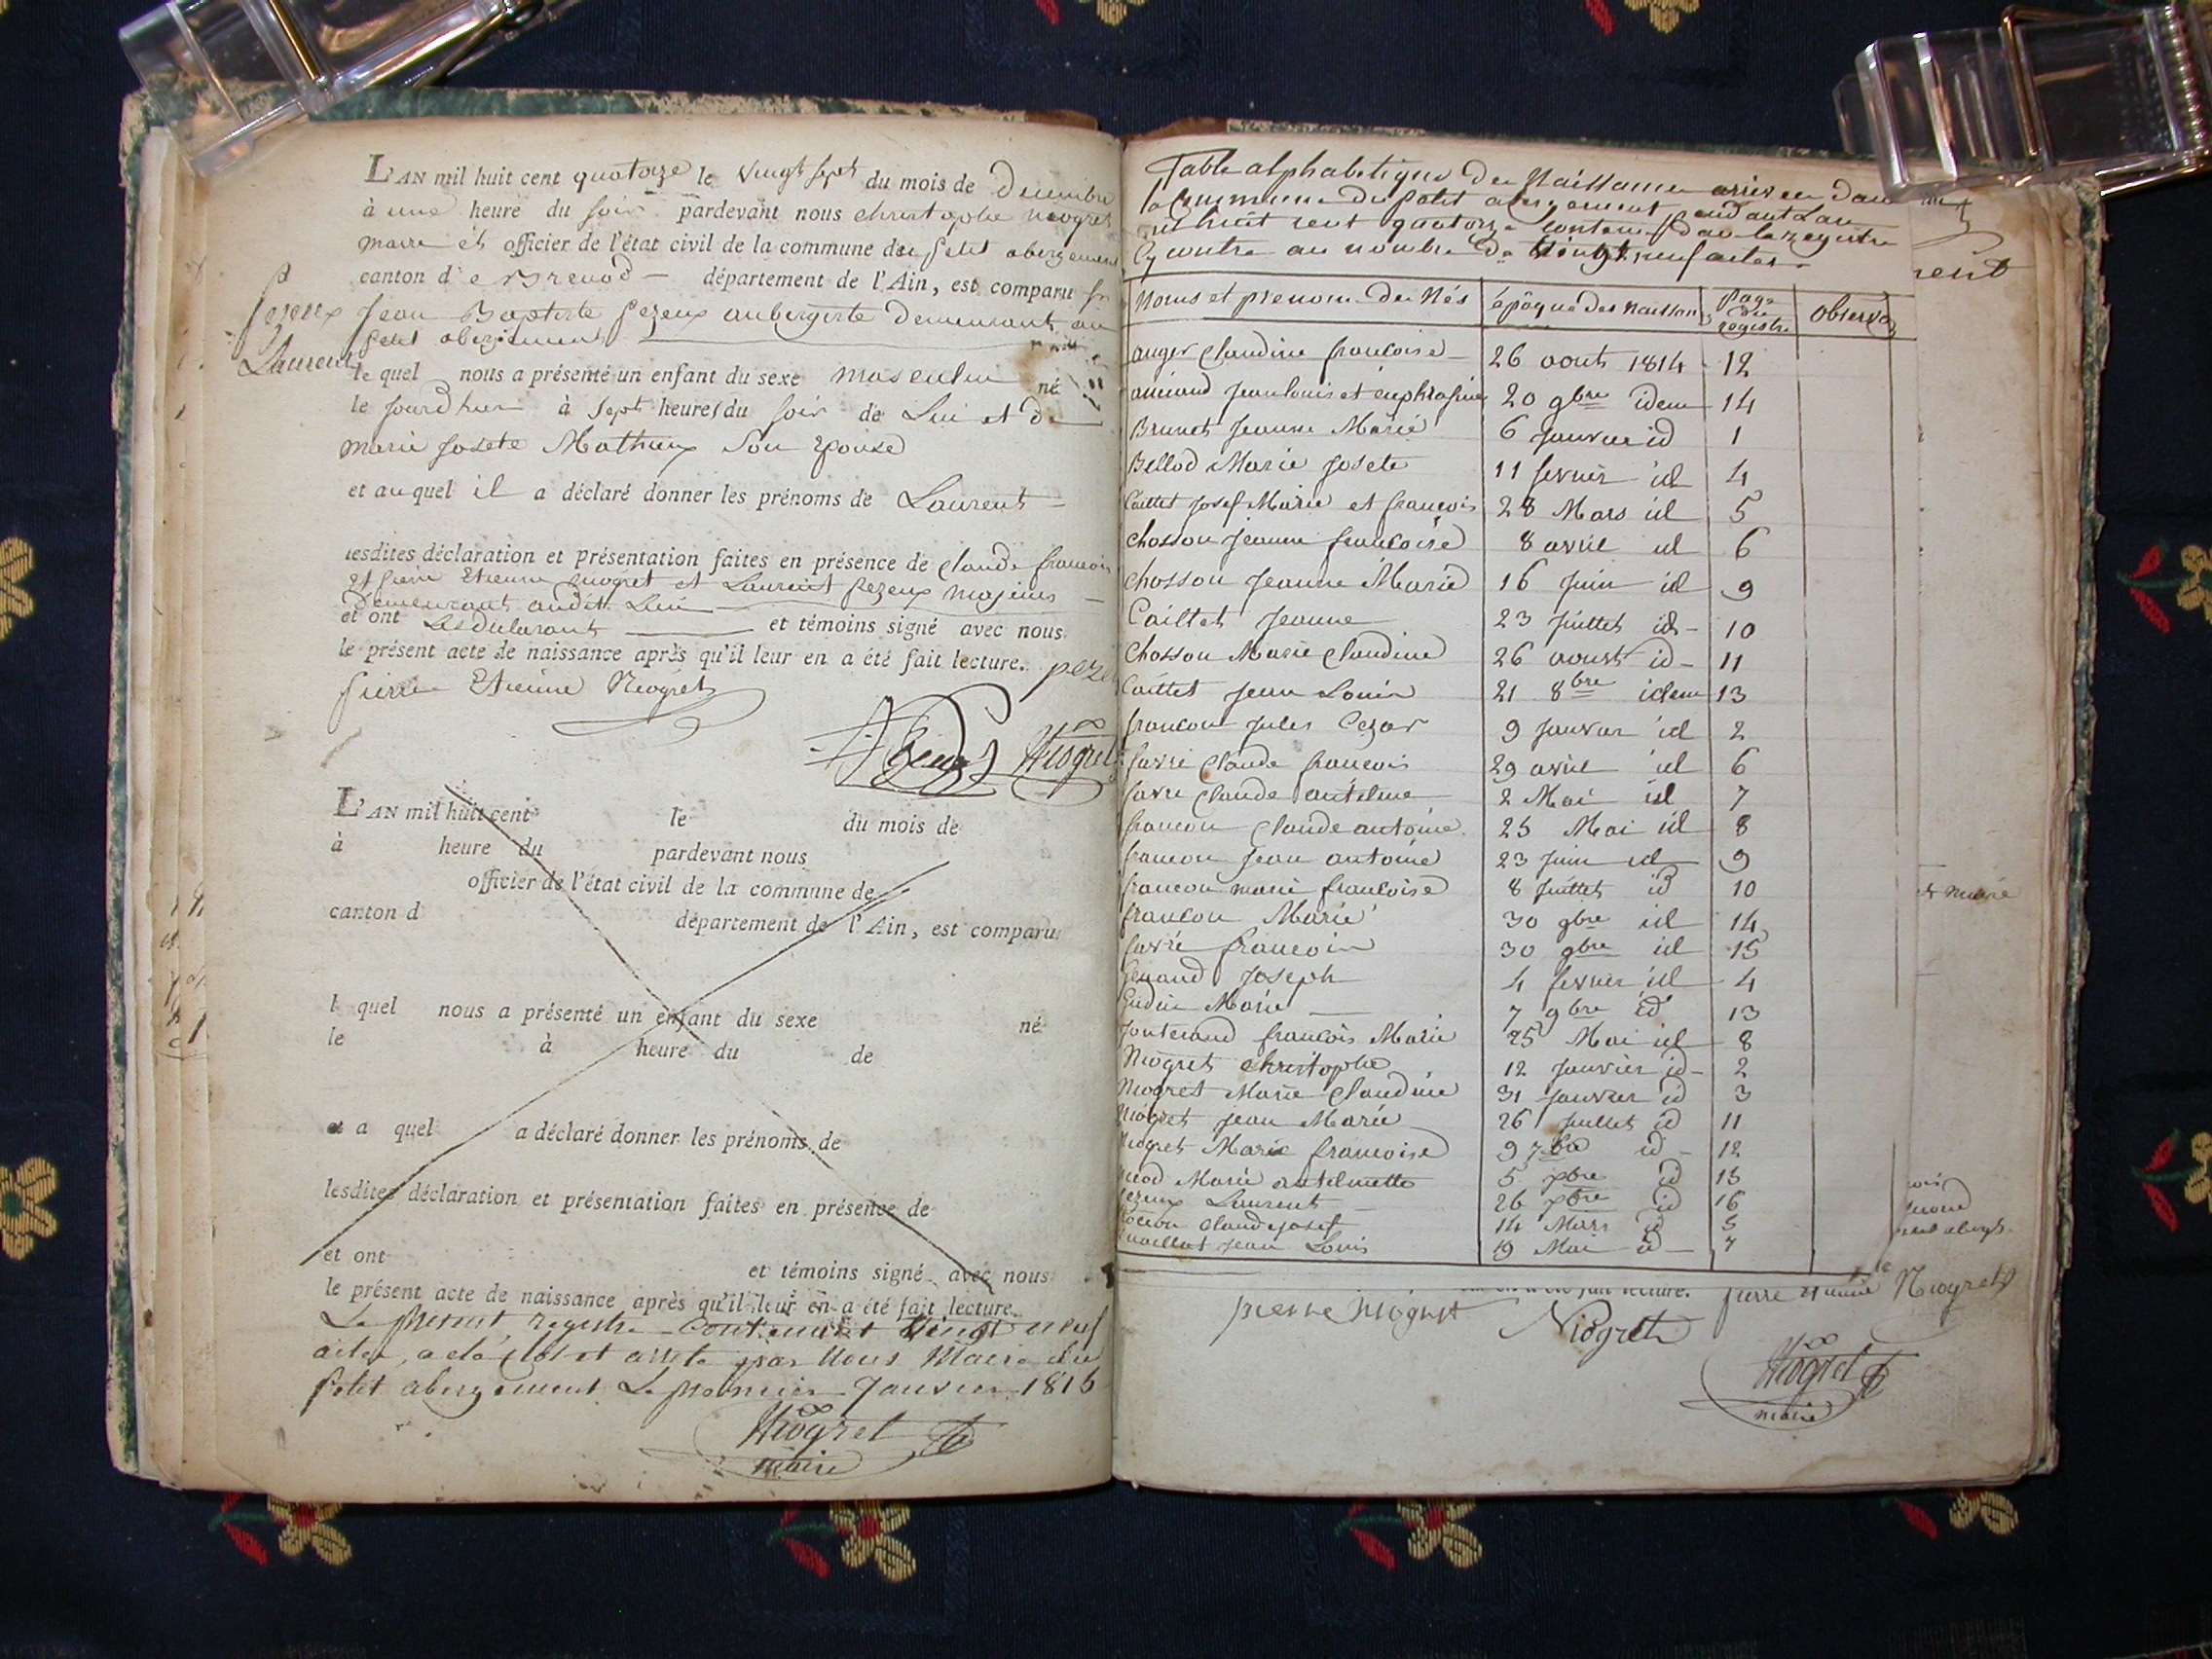 L'AN mil huit cent quatorze le vingt sept du mois de decembre
à une heure du soir pardevant nous christophe niogret
maire et officier de l'état civil de la commune du petit abergement
canton de Brenod département de l'Ain, est comparu
pezeux Jean Baptiste pezeux aubergiste demeurant au
petit abergement
Laurent
le quel nous a présenté un enfant du sexe masculin né
le jourdhuer à sept heures du soir de Lui et de
marie josete Mathieux son epouse
et auquel il a déclaré donner les prénoms de Laurent
lesdites déclaration et présentation faites en présence de claude francois
et pierre Etienne niogret et Laurent pezeux majeurs
demeurant audit Lieu
et ont Les declarant et témoins signé avec nous
le présent acte de naissance après qu'il leur en a été fait lecture.
pierre Etienne Niogret
Niogret
L'AN mil huit cent le du mois de
à heure du pardevant nous
officier de l'état civil de la commune de
canton d département de l'Ain, est comparu
l quel nous a présenté un enfant du sexe né
le à heure du de
et a quel a déclaré donner les prénoms de
lesdites déclaration et présentation faites en présence de
et ont et témoins signé avec nous
le présent acte de naissance après qu'il leur en a été fait lecture.
Le present registre contenant vingt neuf
actes, a été clos et arreté par Nous Maire du
petit abergement Le premier Janvier 1815
Niogret
maire
Table alphabetique des Naissances arrivées dans
la Commune du Petit abergement pendant Lan
mil huit cent quatorze contenus dans le registre
Cy contre au nombre de vingt neuf actes
Noms et prenoms des Nés époque des naissan. page du registre observa
auger claudine francoise 26 aout 1814 12
jean louis et euphrasine 20 9bre idem 14
Brunet jeanne Marie 6 janvier id 1
Bellod Marie josete 11 fevrier id 4
Caillet josef Marie et francois 28 Mars id 5
chosson jeanne francoise 8 avril id 6
chosson jeanne Marie 16 juin id 9
Caillet jeanne 23 juillet id 10
chosson Marie claudine 26 aoust id 11
Caillet jean Louis 21 8bre idem 13
francon jules Cezar 9 janvier id 2
favre claude francois 29 avril id 6
favre claude antelme 2 Mai id 7
francon claude antoine 25 Mai id 8
francon jean antoine 23 juin id 9
francon marie francoise 8 juillet id 10
francon Marie 30 9bre id 14
favre francois 30 9bre id 15
joseph 4 fevrier id 4
Marie 7 9bre id 13
francois Marie 25 Mai id 8
Niogret christophe 12 janvier id 2
Niogret Marie claudine 31 janvier id 3
Niogret jean Marie 26 juillet id 11
Niogret Marie francoise 9 7bre id 12
Marie antelmette 5 xbre id 15
pezeux Laurent 26 xbre id 16
claude josef 14 Mars id 5
jean Louis 19 Mai id 7
pierre niogret Niogret pierre etienne Niogret
Niogret
maire